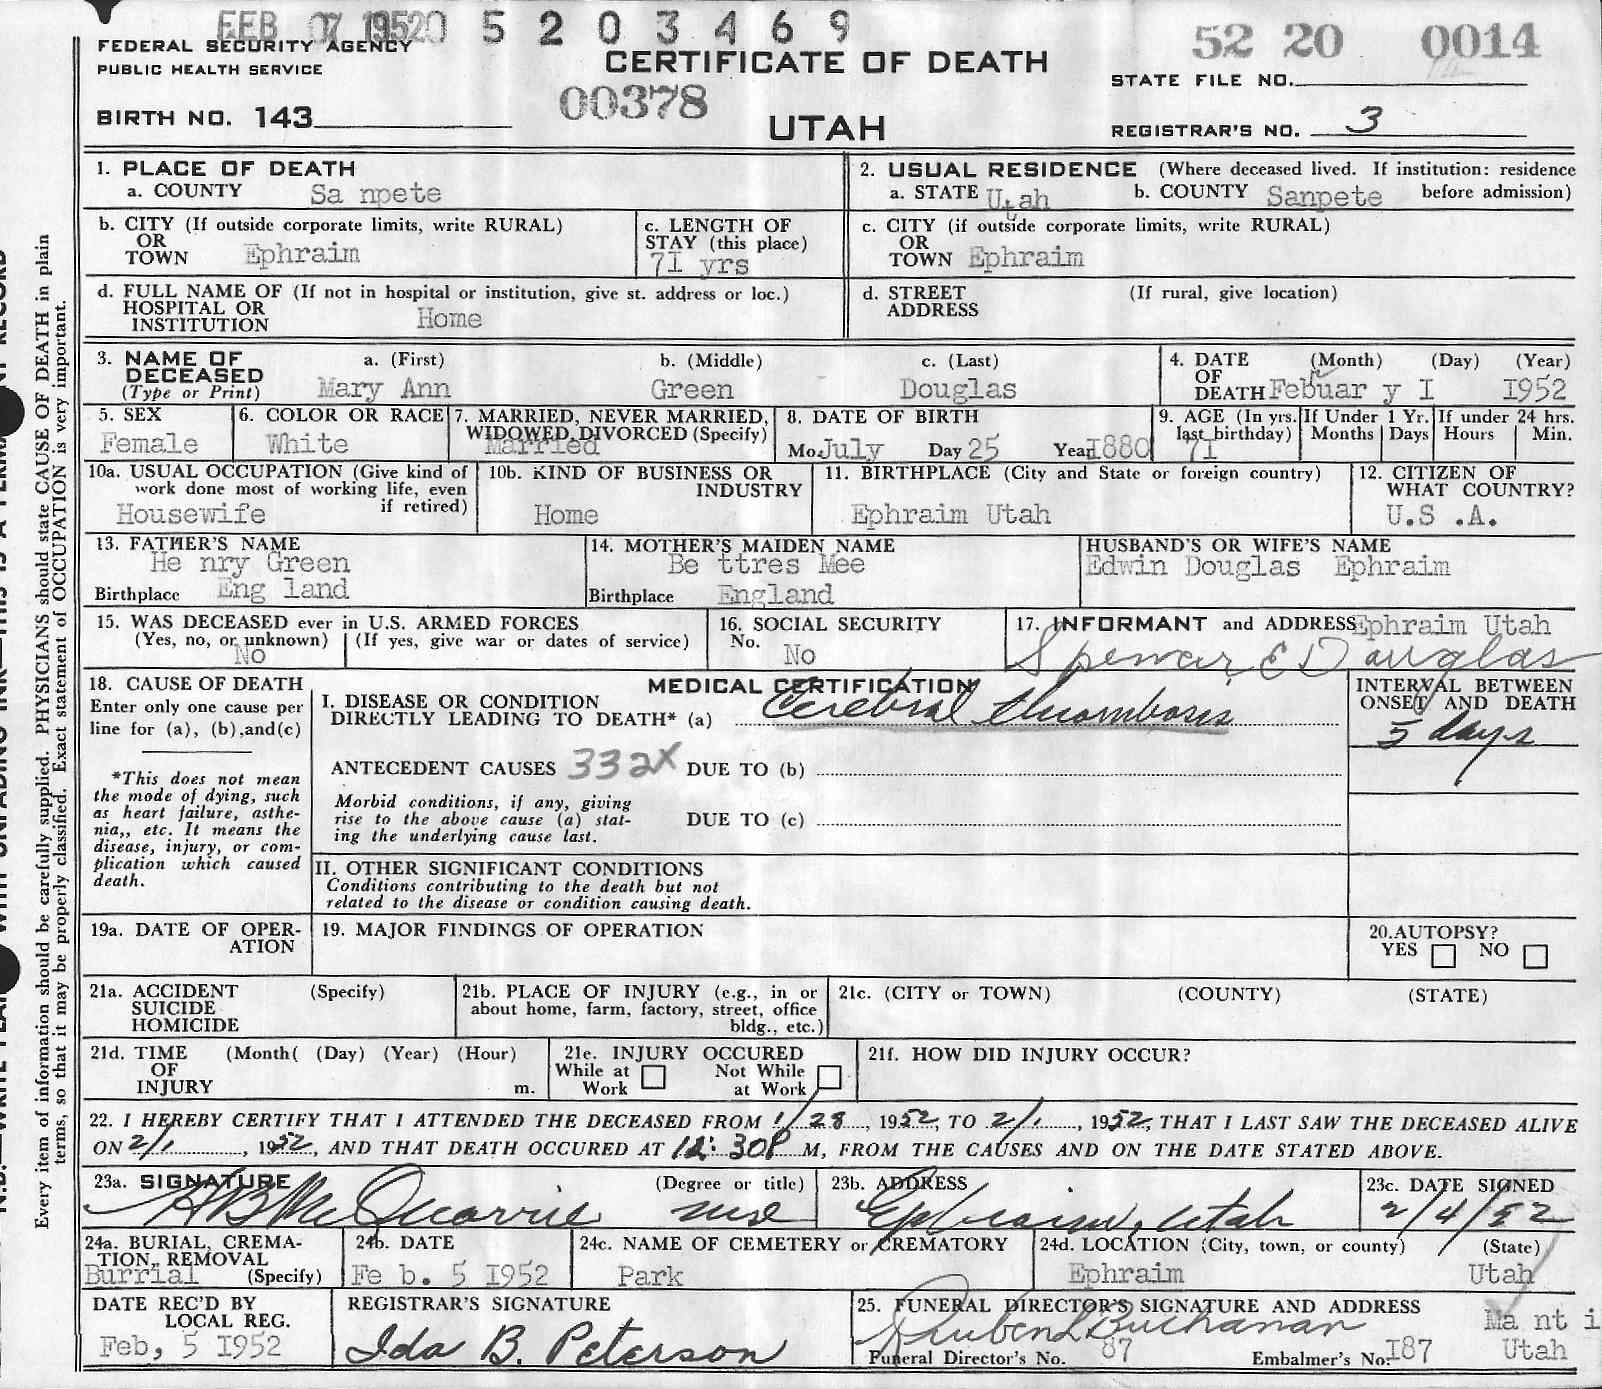 FEB 07 1952 0 5 2 0 3 4 6 9
52 20 0014
FEDERAL SECURITY AGENCY
PUBLIC HEALTH SERVICE
CERTIFICATE OF DEATH
STATE FILE NO.
00378
BIRTH NO. 143
UTAH
REGISTRAR'S NO. 3
1. PLACE OF DEATH
a. COUNTY Sa npete
2. USUAL RESIDENCE (Where deceased lived. If institution: residence
a. STATE Utah b. COUNTY Sanpete before admission)
b. CITY (If outside corporate limits, write RURAL)
OR
TOWN Ephraim
c. LENGTH OF
STAY (this place)
7I yrs
c. CITY (if outside corporate limits, write RURAL)
OR
TOWN Ephraim
d. FULL NAME OF (If not in hospital or institution, give st. address or loc.)
HOSPITAL OR
INSTITUTION Home
d. STREET (If rural, give location)
ADDRESS
3. NAME OF a. (First) b. (Middle) c. (Last)
DECEASED
(Type or Print) Mary Ann Green Douglas
4. DATE (Month) (Day) (Year)
OF
DEATH Febuar y I I952
5. SEX
Female
6. COLOR OR RACE
White
7. MARRIED, NEVER MARRIED,
WIDOWED, DIVORCED (Specify)
Married
8. DATE OF BIRTH
Mo. July Day 25 Year I880
9. AGE (In yrs.
last birthday)
7I
If Under 1 Yr.
Months Days
If under 24 hrs.
Hours Min.
10a. USUAL OCCUPATION (Give kind of
work done most of working life, even
if retired)
Housewife
10b. KIND OF BUSINESS OR
INDUSTRY
Home
11. BIRTHPLACE (City and State or foreign country)
Ephraim Utah
12. CITIZEN OF
WHAT COUNTRY?
U.S .A.
13. FATHER'S NAME
He nry Green
Birthplace Eng land
14. MOTHER'S MAIDEN NAME
Be ttres Mee
Birthplace England
HUSBAND'S OR WIFE'S NAME
Edwin Douglas Ephraim
15. WAS DECEASED ever in U.S. ARMED FORCES
(Yes, no, or unknown) (If yes, give war or dates of service)
No
16. SOCIAL SECURITY
No.
No
17. INFORMANT and ADDRESS Ephraim Utah
Spencer E Douglas
18. CAUSE OF DEATH
Enter only one cause per
line for (a), (b),and(c)
*This does not mean
the mode of dying, such
as heart failure, asthe-
nia,, etc. It means the
disease, injury, or com-
plication which caused
death.
MEDICAL CERTIFICATION
I. DISEASE OR CONDITION
DIRECTLY LEADING TO DEATH* (a) Cerebral thrombosis
ANTECEDENT CAUSES 332X DUE TO (b)
Morbid conditions, if any, giving
rise to the above cause (a) stat-
ing the underlying cause last.
DUE TO (c)
INTERVAL BETWEEN
ONSET AND DEATH
5 days
II. OTHER SIGNIFICANT CONDITIONS
Conditions contributing to the death but not
related to the disease or condition causing death.
19a. DATE OF OPER-
ATION
19. MAJOR FINDINGS OF OPERATION
20.AUTOPSY?
YES NO
21a. ACCIDENT (Specify)
SUICIDE
HOMICIDE
21b. PLACE OF INJURY (e.g., in or
about home, farm, factory, street, office
bldg., etc.)
21c. (CITY or TOWN) (COUNTY) (STATE)
21d. TIME (Month( (Day) (Year) (Hour)
OF
INJURY m.
21e. INJURY OCCURED
While at Not While
Work at Work
21f. HOW DID INJURY OCCUR?
22. I HEREBY CERTIFY THAT I ATTENDED THE DECEASED FROM 1/28, 1952, TO 2/1, 1952, THAT I LAST SAW THE DECEASED ALIVE
ON 2/1, 1952, AND THAT DEATH OCCURED AT 12:30P M, FROM THE CAUSES AND ON THE DATE STATED ABOVE.
23a. SIGNATURE (Degree or title)
McQuarrie
23b. ADDRESS
Ephraim, Utah
23c. DATE SIGNED
2/4/52
24a. BURIAL, CREMA-
TION, REMOVAL
Burrial (Specify)
24b. DATE
Fe b. 5 I952
24c. NAME OF CEMETERY or CREMATORY
Park
24d. LOCATION (City, town, or county) (State)
Ephraim Utah
DATE REC'D BY
LOCAL REG.
Feb, 5 I952
REGISTRAR'S SIGNATURE
Ida B. Peterson
25. FUNERAL DIRECTOR'S SIGNATURE AND ADDRESS
Buchanan Ma nt i
Utah
Funeral Director's No. 87 Embalmer's No. I87
Every item of information should be carefully supplied. PHYSICIANS should state CAUSE OF DEATH in plain
terms, so that it may be properly classified. Exact statement of OCCUPATION is very important.